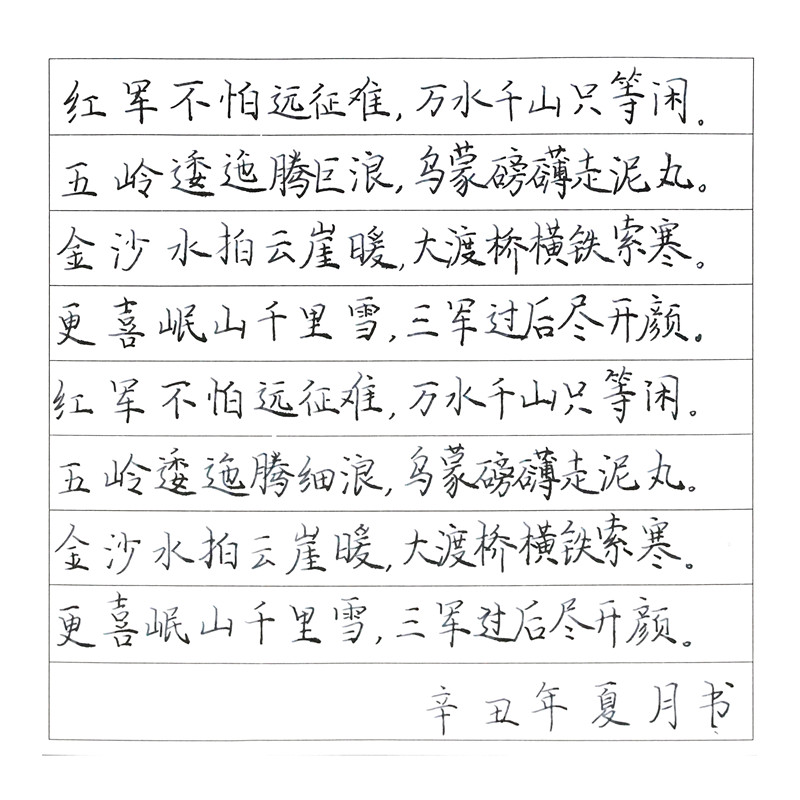 红军不怕远征难，万水千山只等闲。
五岭逶迤腾巨浪，乌蒙磅礴走泥丸。
金沙水拍云崖暖，大渡桥横铁索寒。
更喜岷山千里雪，三军过后尽开颜。
红军不怕远征难，万水千山只等闲。
五岭逶迤腾细浪，乌蒙磅礴走泥丸。
金沙水拍云崖暖，大渡桥横铁索寒。
更喜岷山千里雪，三军过后尽开颜。
辛丑年夏月书